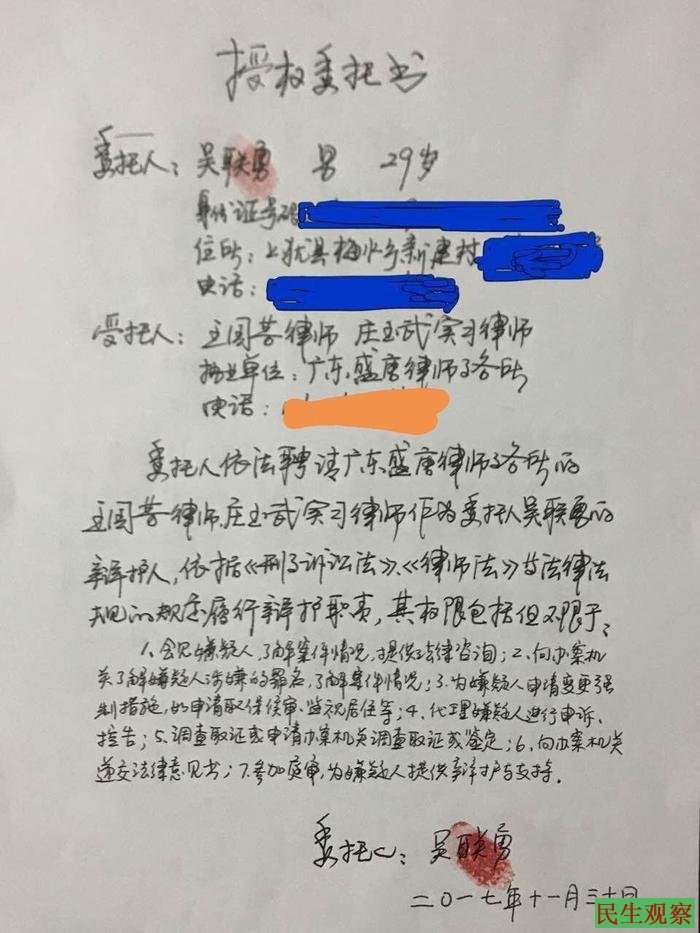 授权委托书
委托人：吴联勇 男 29岁
身份证号码
住所：上犹县梅水乡新建村
电话：
受托人：王国芳律师 庄玉武实习律师
执业单位：广东盛唐律师事务所
电话：
委托人依法聘请广东盛唐律师事务所的
王国芳律师、庄玉武实习律师作为委托人吴联勇的
辩护人，依据《刑事诉讼法》、《律师法》与法律法
规的规定履行辩护职责，其权限包括但不限于：
1、会见嫌疑人，了解案件情况，提供法律咨询；2、向办案机
关了解嫌疑人涉嫌的罪名，了解案件情况；3、为嫌疑人申请变更强
制措施，如申请取保候审、监视居住等；4、代理嫌疑人进行申诉、
控告；5、调查取证或申请办案机关调查取证或鉴定；6、向办案机关
递交法律意见书；7、参加庭审，为嫌疑人提供辩护与支持。
委托人：吴联勇
二〇一七年十一月三十日
民生观察